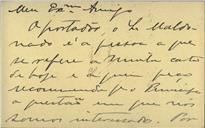 Meu Exmo Amigo
O portador, o Sr Maldo-
nado é a pessoa a que
se refere a minha carta
de hoje e a quem peço
recommende o
a questão em que nos
somos interessados. Por